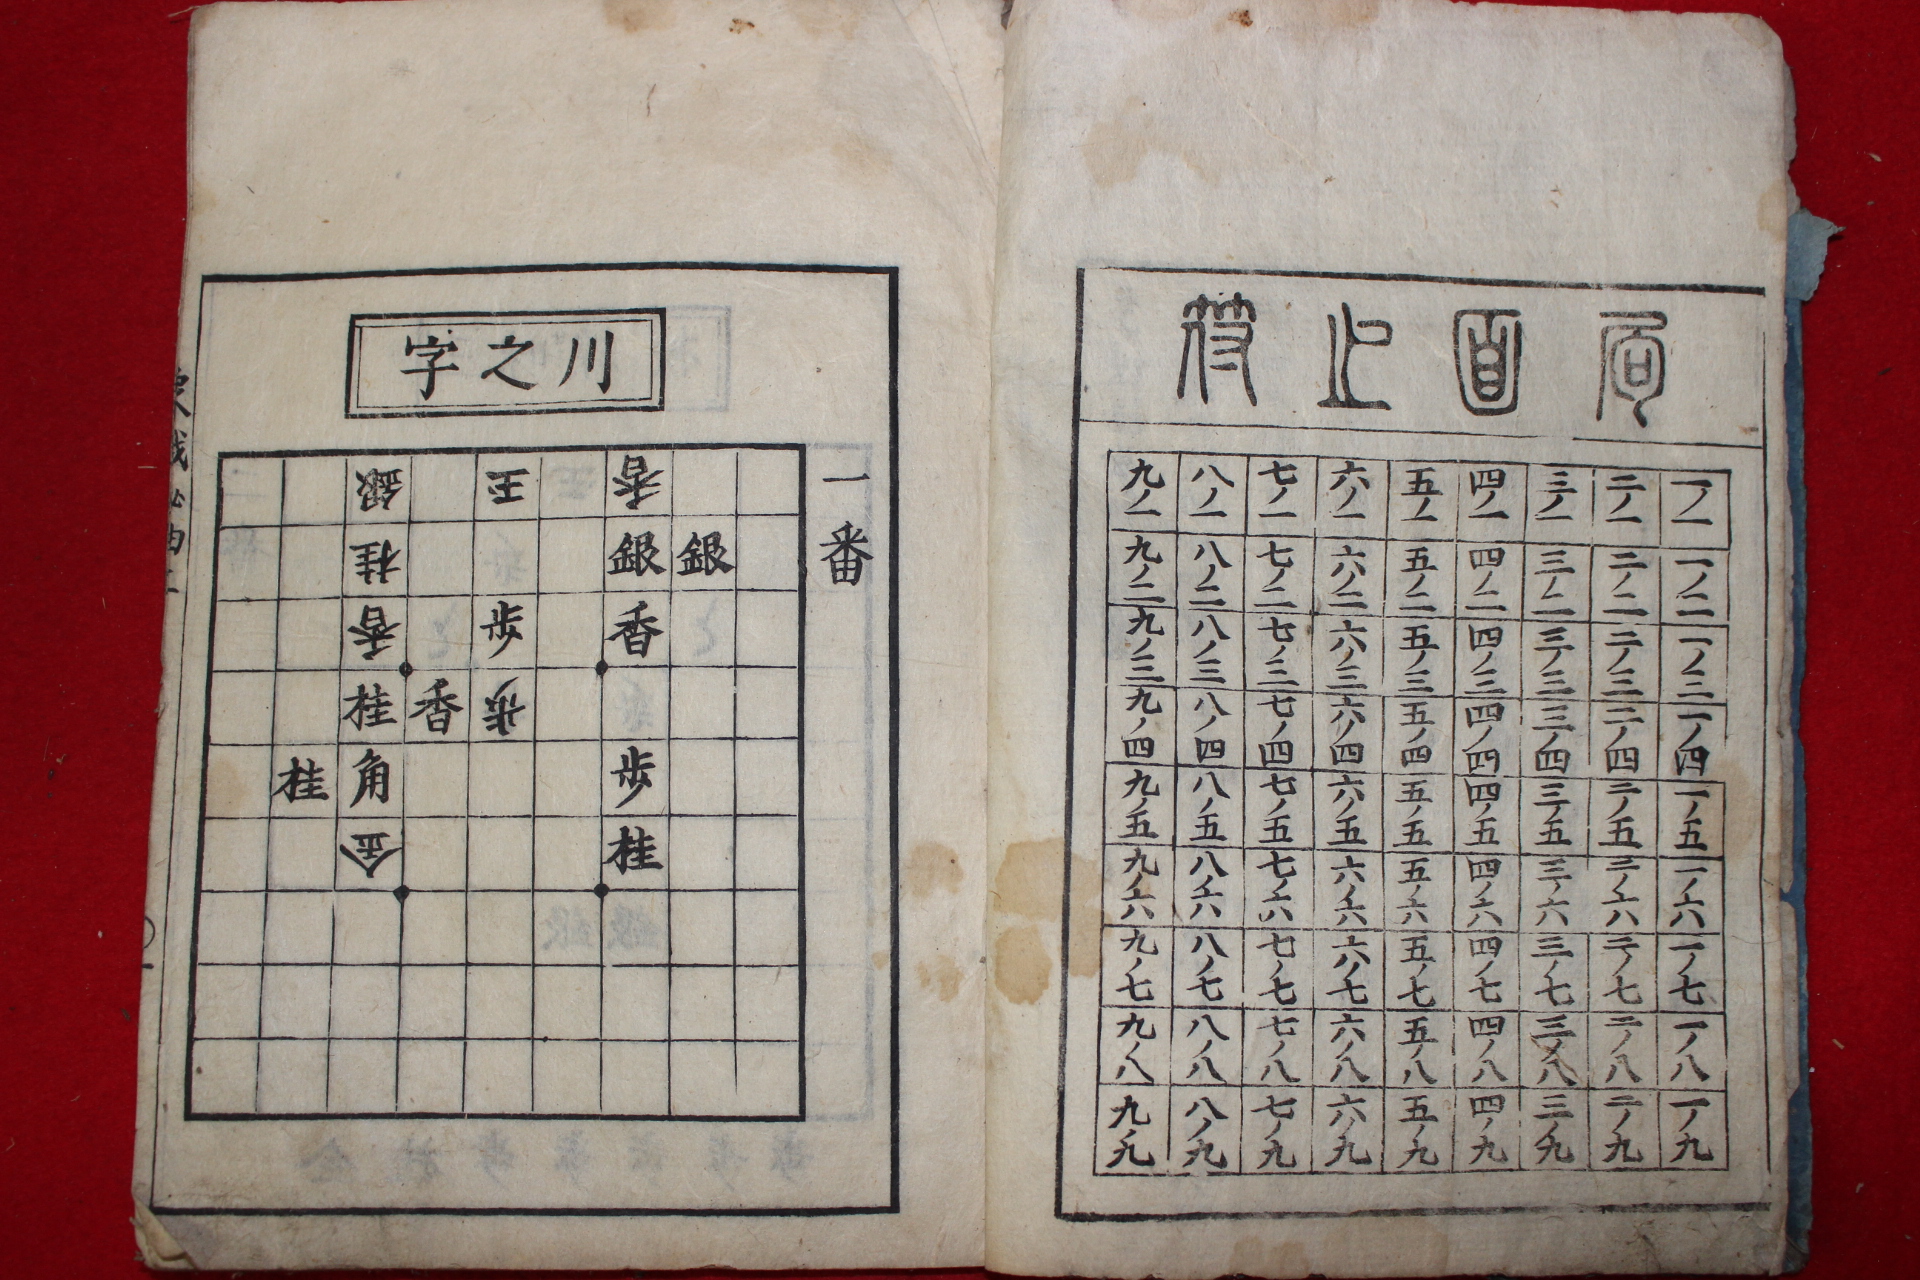 局面止符
一ノ一 一ノ二 一ノ三 一ノ四 一ノ五 一ノ六 一ノ七 一ノ八 一ノ九
二ノ一 二ノ二 二ノ三 二ノ四 二ノ五 二ノ六 二ノ七 二ノ八 二ノ九
三ノ一 三ノ二 三ノ三 三ノ四 三ノ五 三ノ六 三ノ七 三ノ八 三ノ九
四ノ一 四ノ二 四ノ三 四ノ四 四ノ五 四ノ六 四ノ七 四ノ八 四ノ九
五ノ一 五ノ二 五ノ三 五ノ四 五ノ五 五ノ六 五ノ七 五ノ八 五ノ九
六ノ一 六ノ二 六ノ三 六ノ四 六ノ五 六ノ六 六ノ七 六ノ八 六ノ九
七ノ一 七ノ二 七ノ三 七ノ四 七ノ五 七ノ六 七ノ七 七ノ八 七ノ九
八ノ一 八ノ二 八ノ三 八ノ四 八ノ五 八ノ六 八ノ七 八ノ八 八ノ九
九ノ一 九ノ二 九ノ三 九ノ四 九ノ五 九ノ六 九ノ七 九ノ八 九ノ九
川之字
一番
銀
香 銀 香 歩 桂
玉 歩 歩
香
銀 桂 香 桂 角 金
桂